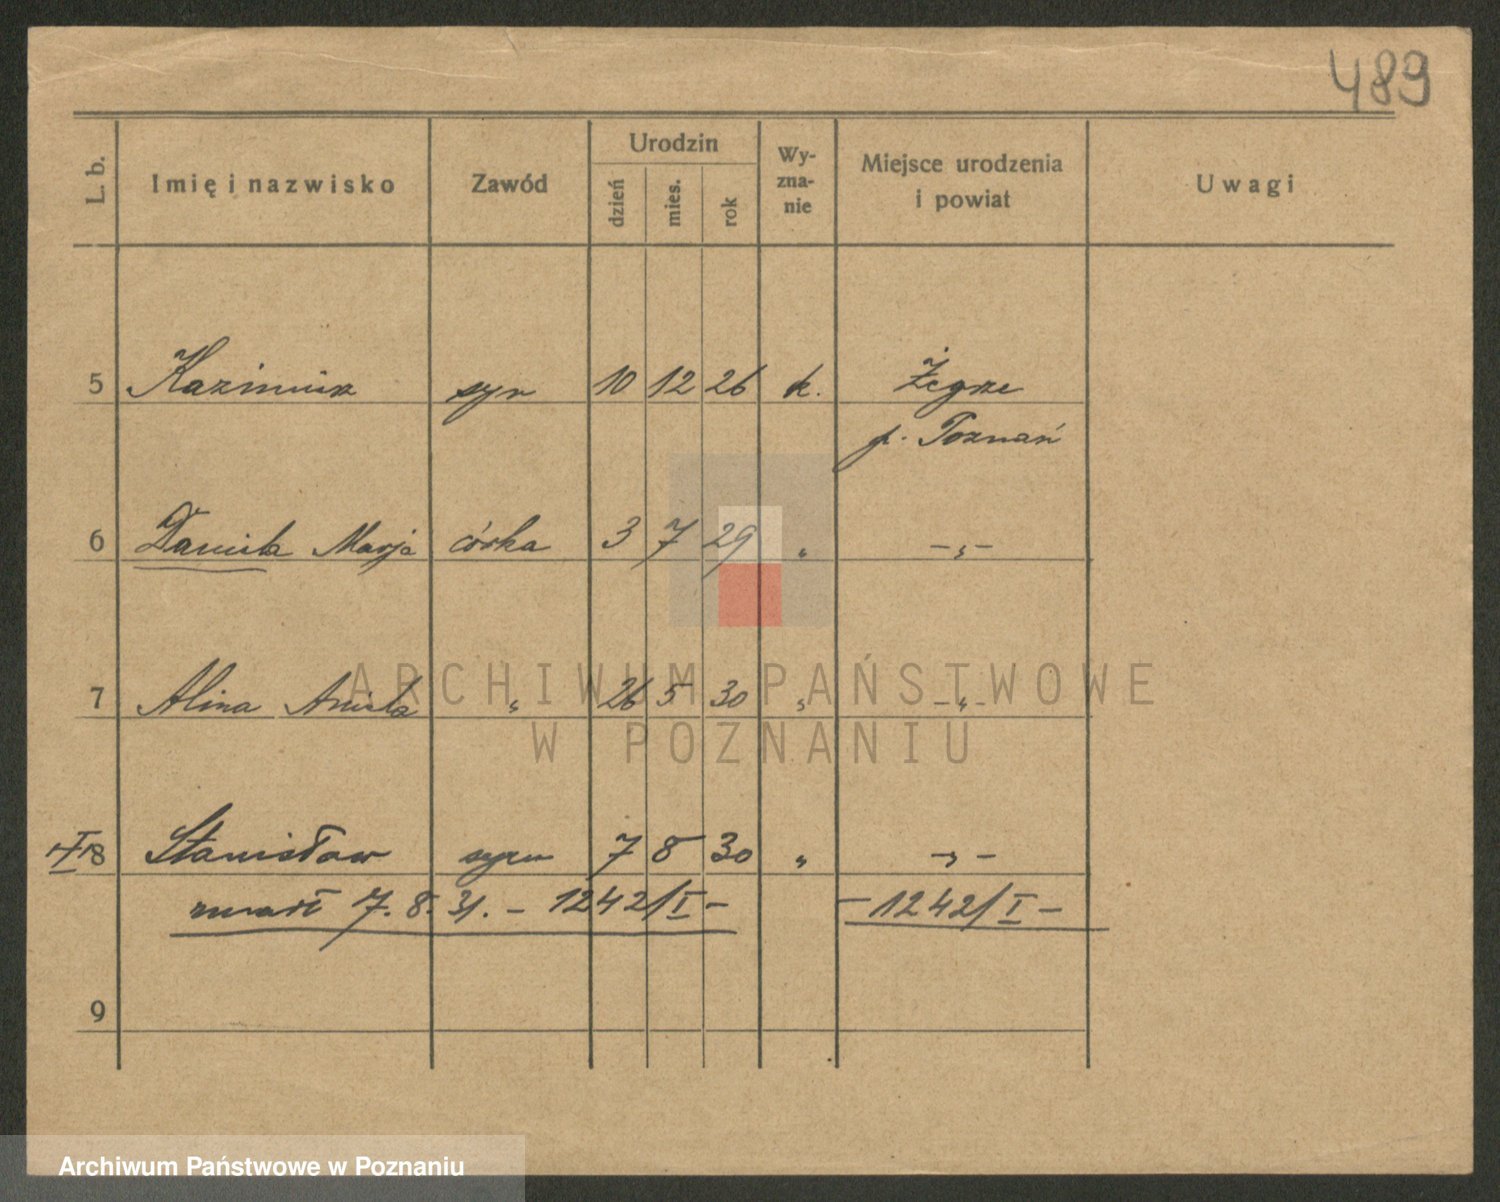 489
L. b. Imię i nazwisko Zawód Urodzin dzień mies. rok Wy-zna-nie Miejsce urodzenia i powiat Uwagi
5 Kazimierz syn 10 12 26 k. Żegrze
p. Poznań
6 Daniela Marja córka 3 7 29 „ -„-
7 Alina Aniela „ 26 5 30 „ -„-
8 Stanisław syn 7 8 30 „ -„-
zmarł 7. 8. 31. - 1242/I - - 1242/I -
9
ARCHIWUM PAŃSTWOWE
W POZNANIU
Archiwum Państwowe w Poznaniu